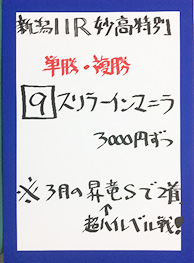 新潟11R妙高特別
単勝・複勝
9 スリラーインマニラ
3000円ずつ
※3月の昇竜Sで2着
↑
超ハイレベル戦!